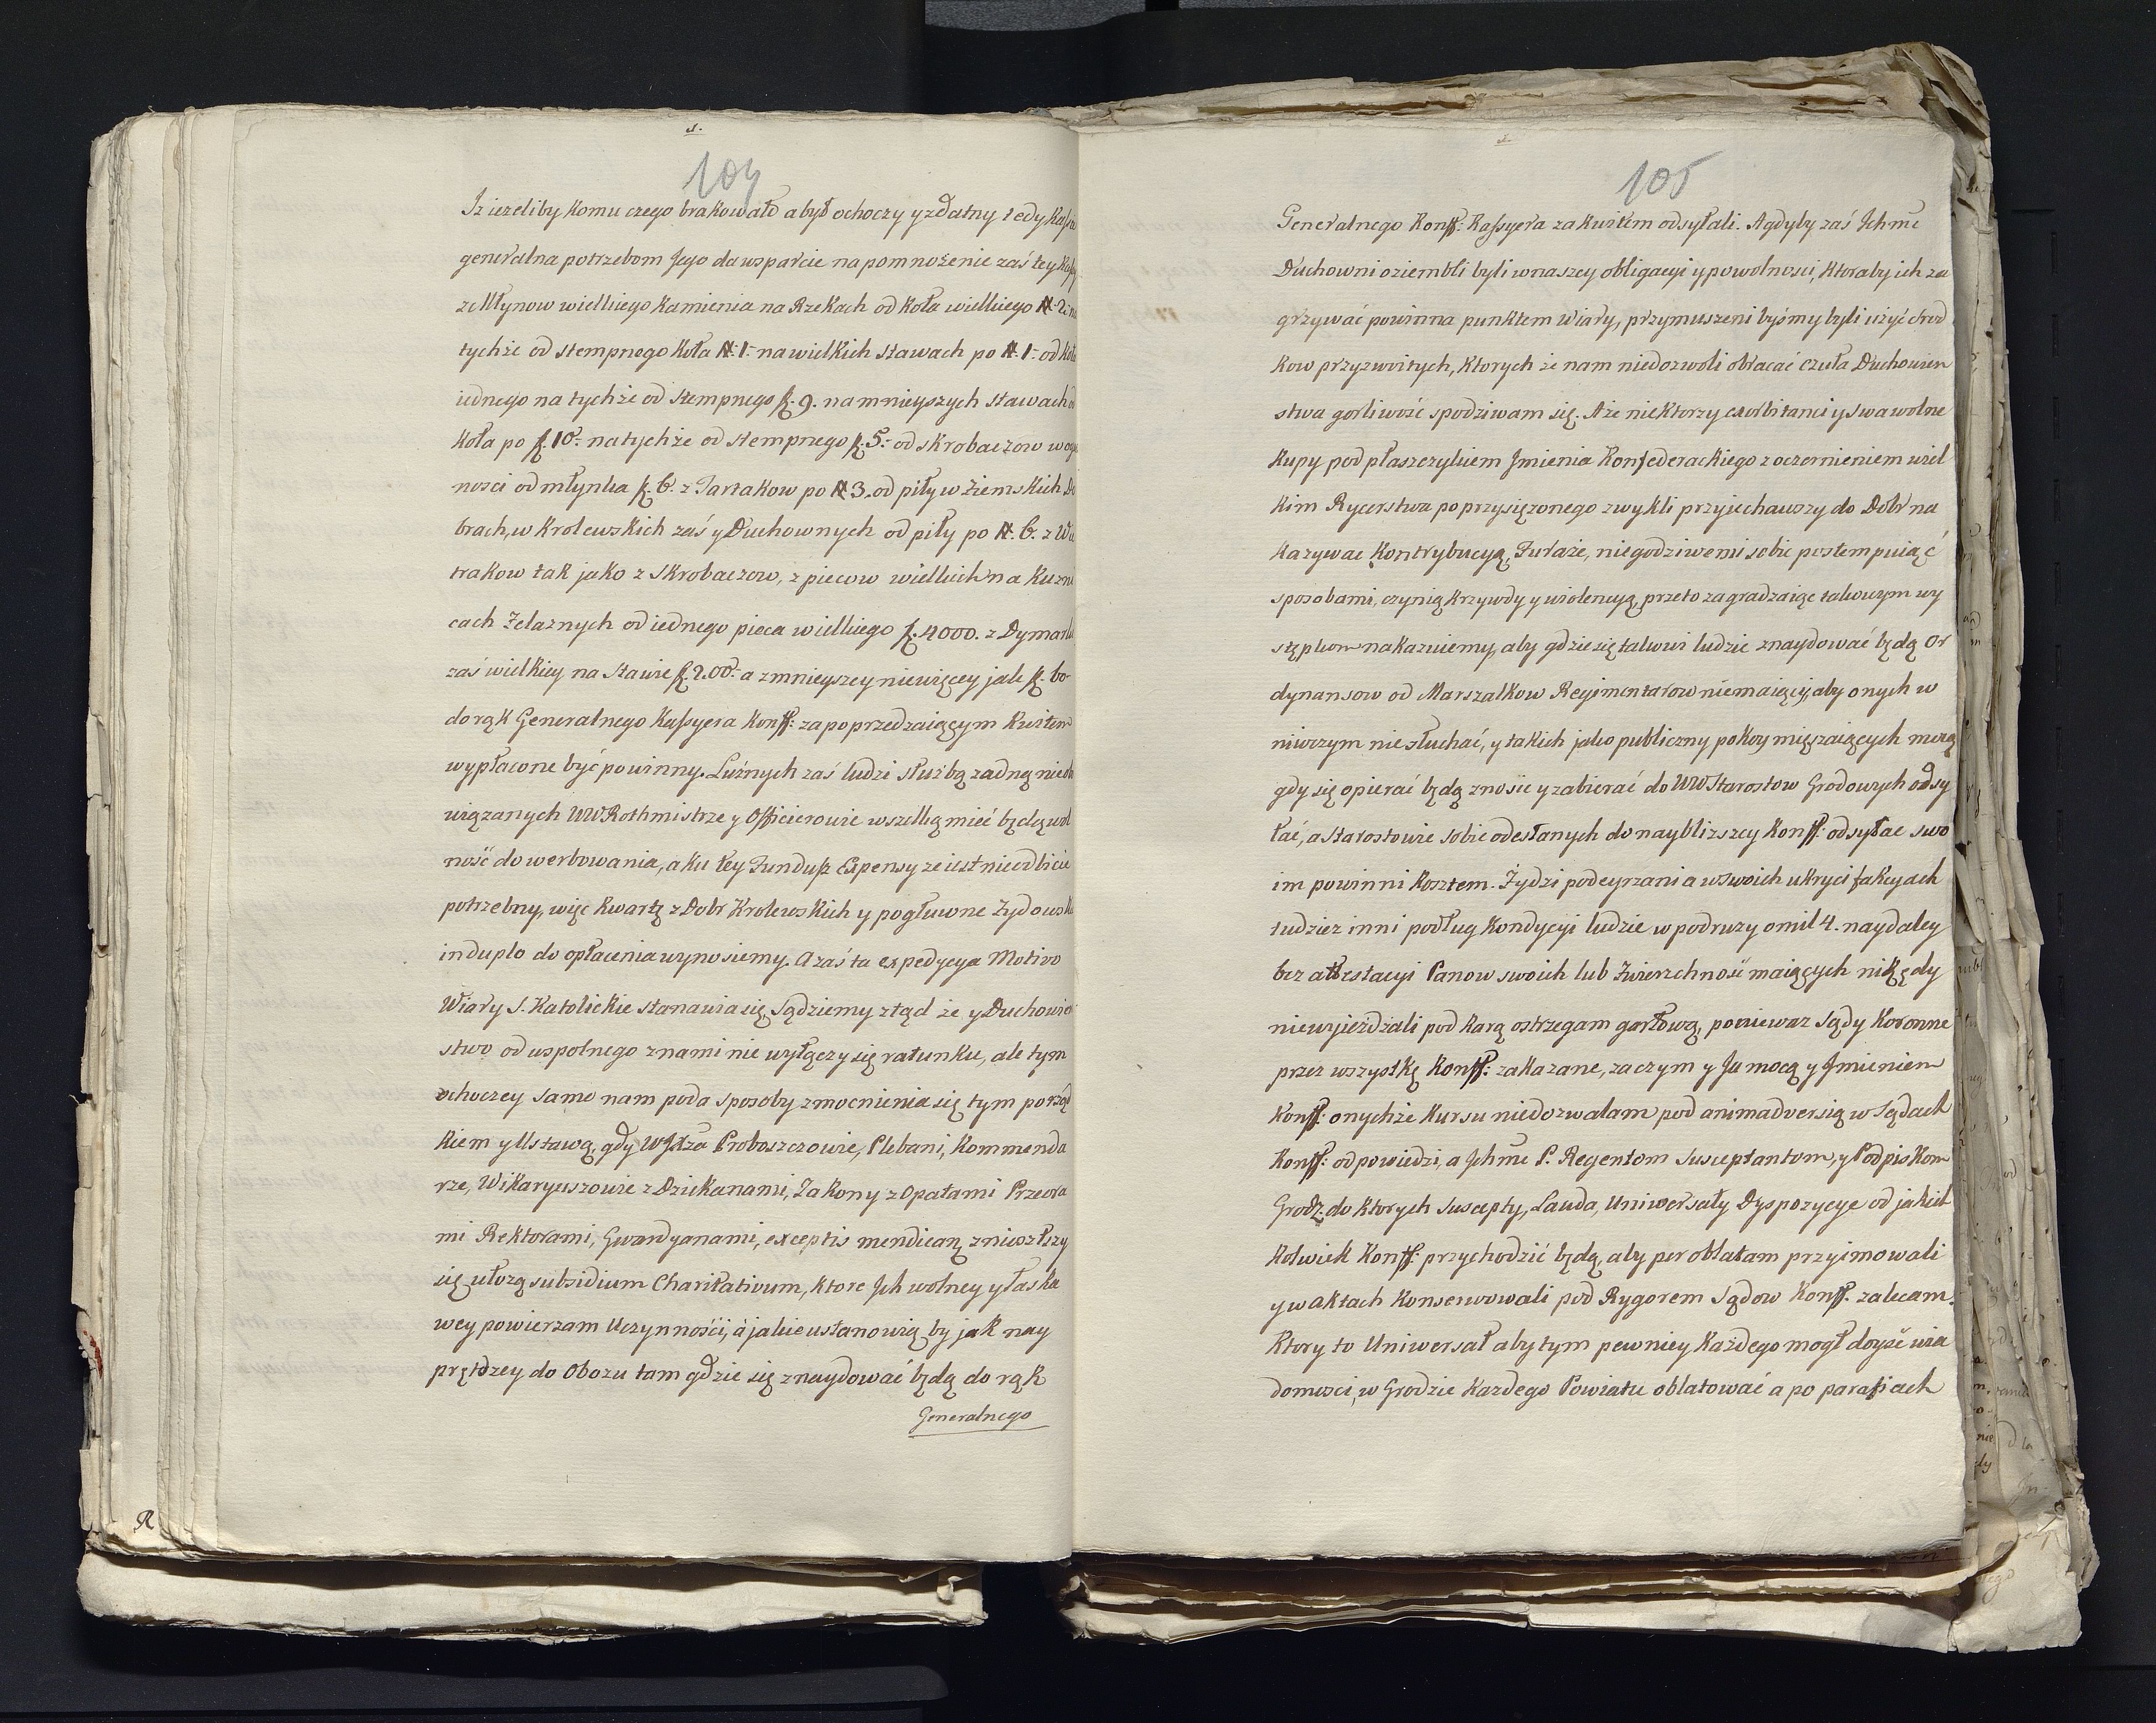 104
Iz iezeliby komu czego brakowało a był ochoczy y zdatny tedy Kassa
generalna potrzebom Jego da wsparcie na pomnożenie zaś tey Kassy
ze Młynow wielkiego Kamienia na Rzekach od Koła wielkiego # 2 na
tychże od stempnego Koła #. 1. na wielkich stawach po #. 1. od Koła
iednego na tychże od stempnego f. 9. na mnieyszych stawach od
Koła po f. 10. na tychże od stempnego f. 5. od skrobaczow w
ności od młynka f. 6. z Tartakow po # 3. od piły w Ziemskich Do
brach, w Krolewskich zaś y Duchownych od piły po #. 6. z Wa
trakow tak jako z skrobaczow, z piecow wielkich na Kuzni
cach Żelaznych od iednego pieca wielkiego f. 4000. z Dymarki
zaś wielkiey na Stawie f. 200. a z mnieyszey niewięcey jak f. 60
do rąk Generalnego Kassyera Konff: za poprzedzaiącym Kwitem
wypłacone być powinny. Luźnych zaś ludzi służbą zadną nieob
wiązanych WW Rothmistrze y Officierowie wszelką mieć będą wol
ność do werbowania, a ku tey Fundusz Expensy ze iest nieodbicie
potrzebny, więc Kwartę z Dobr Krolewskich y pogłuwne Żydowsk
in duplo do opłacenia wynosiemy. A zaś ta expedycya Motivo
Wiary S. Katolickie stanawia się, Sądziemy ztąd że y Duchowień
stwo od uspolnego znami nie wyłączy się ratunku, ale tym
ochoczey samo nam poda sposoby zmocnienia się tym porząd
kiem y Ustawą, gdy WJXza Proboszczowie, Plebani, Kommenda
rze, Wikaryuszowie z Dziekanami, Zakony z Opatami Przeora
mi Rektorami, Gwardyanami, exceptis mendicanę zniosłszy
się ułożą subsidium Charitativum, ktore Jch wolney y łaska
wey powierzam Uczynności, á jakie ustanowią by jak nay
prętdzey do Obozu tam gdzie się znaydować będą do rąk
Generalnego
105
Generalnego Konff: Kassyera za kwitem odsyłali. A gdyby zaś Jchme
Duchowni oziembli byli w naszey obligacyi y powolnosci, ktoraby ich za
grzywać powinna punktem Wiary, przymuszeni byśmy byli użyć srod
kow przyzwoitych, ktorych że nam niedozwoli obracać czuła Duchowien
stwa gorliwość spodziwam się. Aże niektorzy exorbitanci y swawolne
Kupy pod płaszczykiem Jmienia Konfederackiego z oczernieniem wiel
kim Rycerstwa poprzysięzonego zwykli przyiechawszy do Dobr na
kazywac Kontrybucyą, Furaże, niegodziwemi sobie postempuiąć
sposobami, czynią krzywdy y wiolencyą, przeto zagradzaiąc takowym wy
stępkom nakazuiemy, aby gdzie się takowi ludzie znaydować będą Or
dynansow od Marszałkow Regimentarow niemaiący, aby onych w
niwczym nie słuchać, y takich jako publiczny pokoy mięszaiących mocą
gdy się opierać będą znosic y zabierać do WWStarostow Grodowych odsy
łać, a Starostowie sobie odesłanych do naybliższey Konff: odsyłac swo
im powinni kosztem. Żydzi podeyrzani a w swoich ukryci fakcyach
tudziez inni podług Kondycyi ludzie w podruzy omil 4. naydaley
bez attestacyi Panow swoich lub Zwierzchność maiących nikędy
niewyieżdżali pod karą ostrzegam garłową, poniewaz Sądy Koronne
przez wszystkę Konff: zakazane, zaczym y Ja mocą y Jmieniem
Konff: onychże Kursu niedozwalam pod animadversią w Sądach
Konff: odpowiedzi, a Jchme P. Regentom Susceptantom, y Podpiskom
Grodz. do ktorych Suscepty, Lauda, Uniwersały Dyspozycye od jakich
kolwiek Konff: przychodzić będą, aby per oblatam przyimowali
y w aktach Konserwowali pod Rygorem Sądow Konff. zalecam.
Ktory to Uniwersał aby tym pewniey każdego mogł doyść wia
domości, w Grodzie każdego Powiatu oblatować a po parafiach